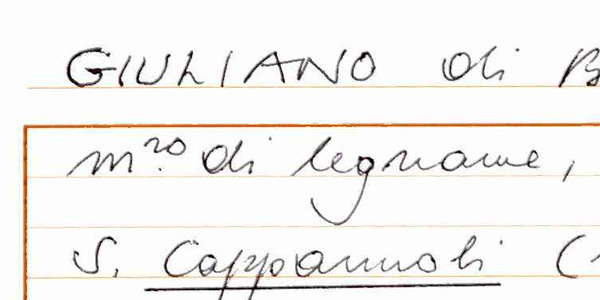 GIULIANO di B
m.ro di legname,
S. Cappannoli (